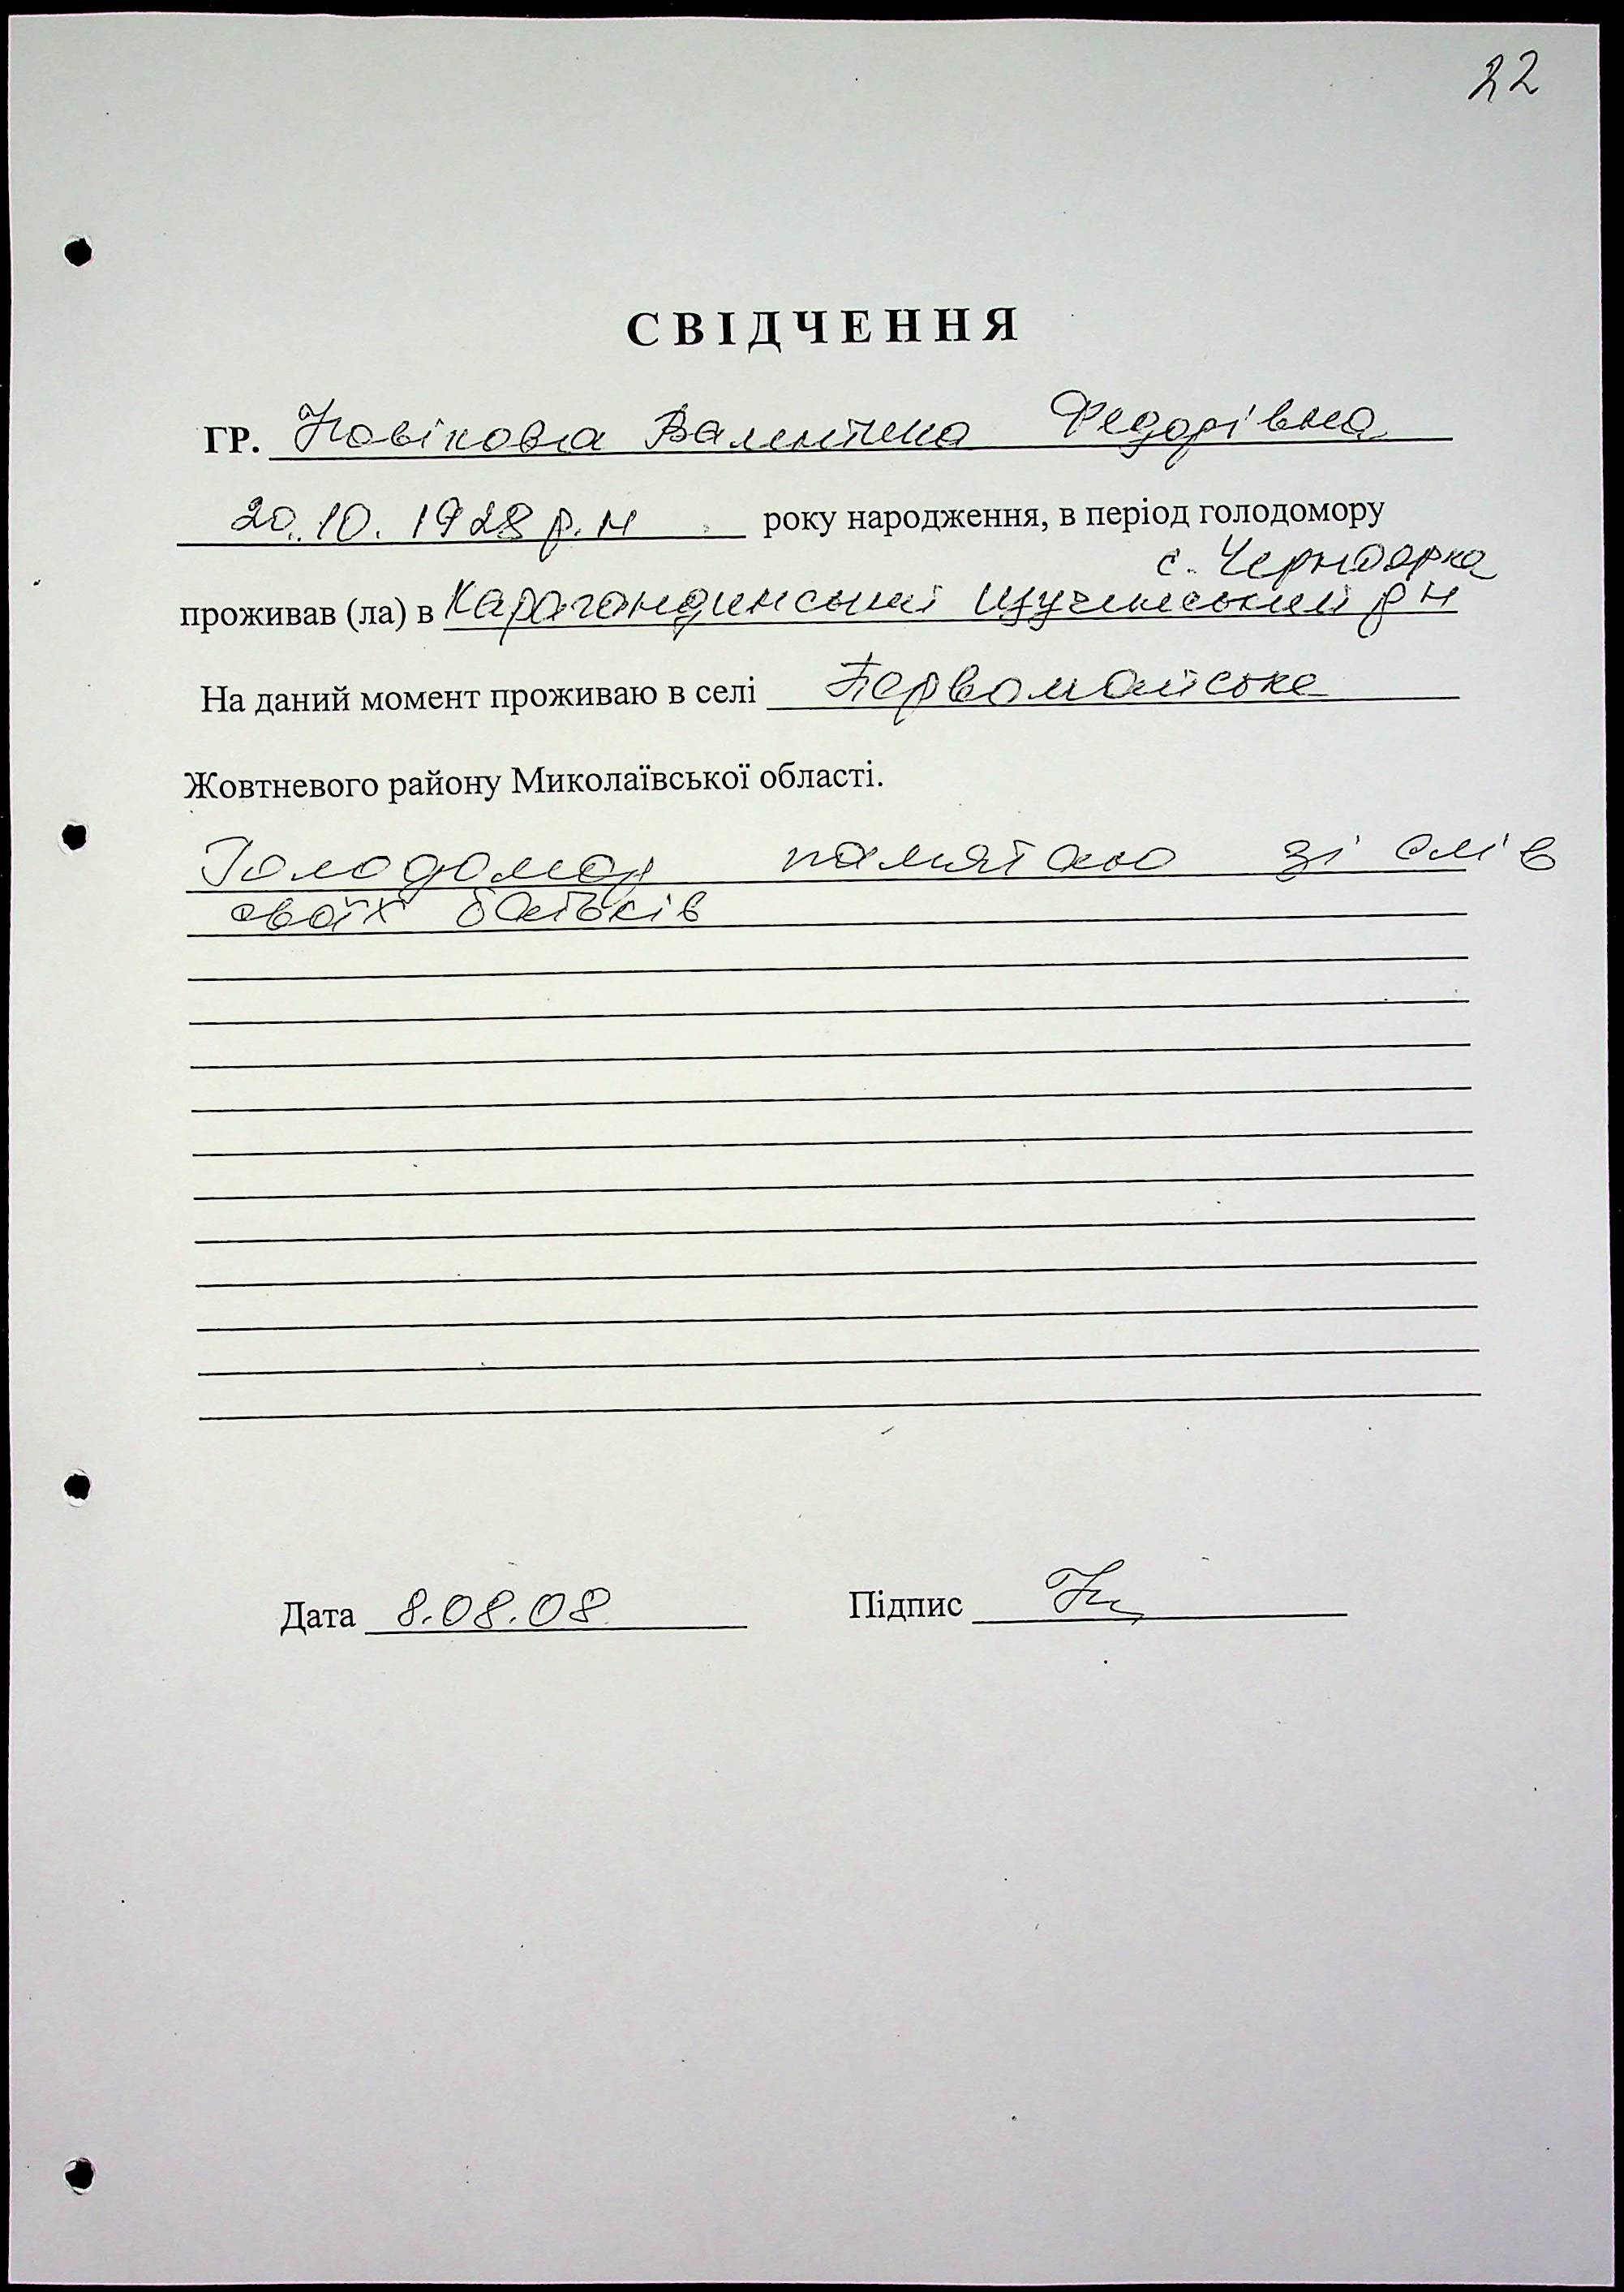 22
СВІДЧЕННЯ
ГР. Новікова Валентина Федорівна
20.10.1928 р.н. року народження, в період голодомору
с.
проживав (ла) в Карагандинський Щучинський р н
На даний момент проживаю в селі Первомайське
Жовтневого району Миколаївської області.
Голодомор памятаю зі слів
своїх батьків
Дата 8.08.08 Підпис